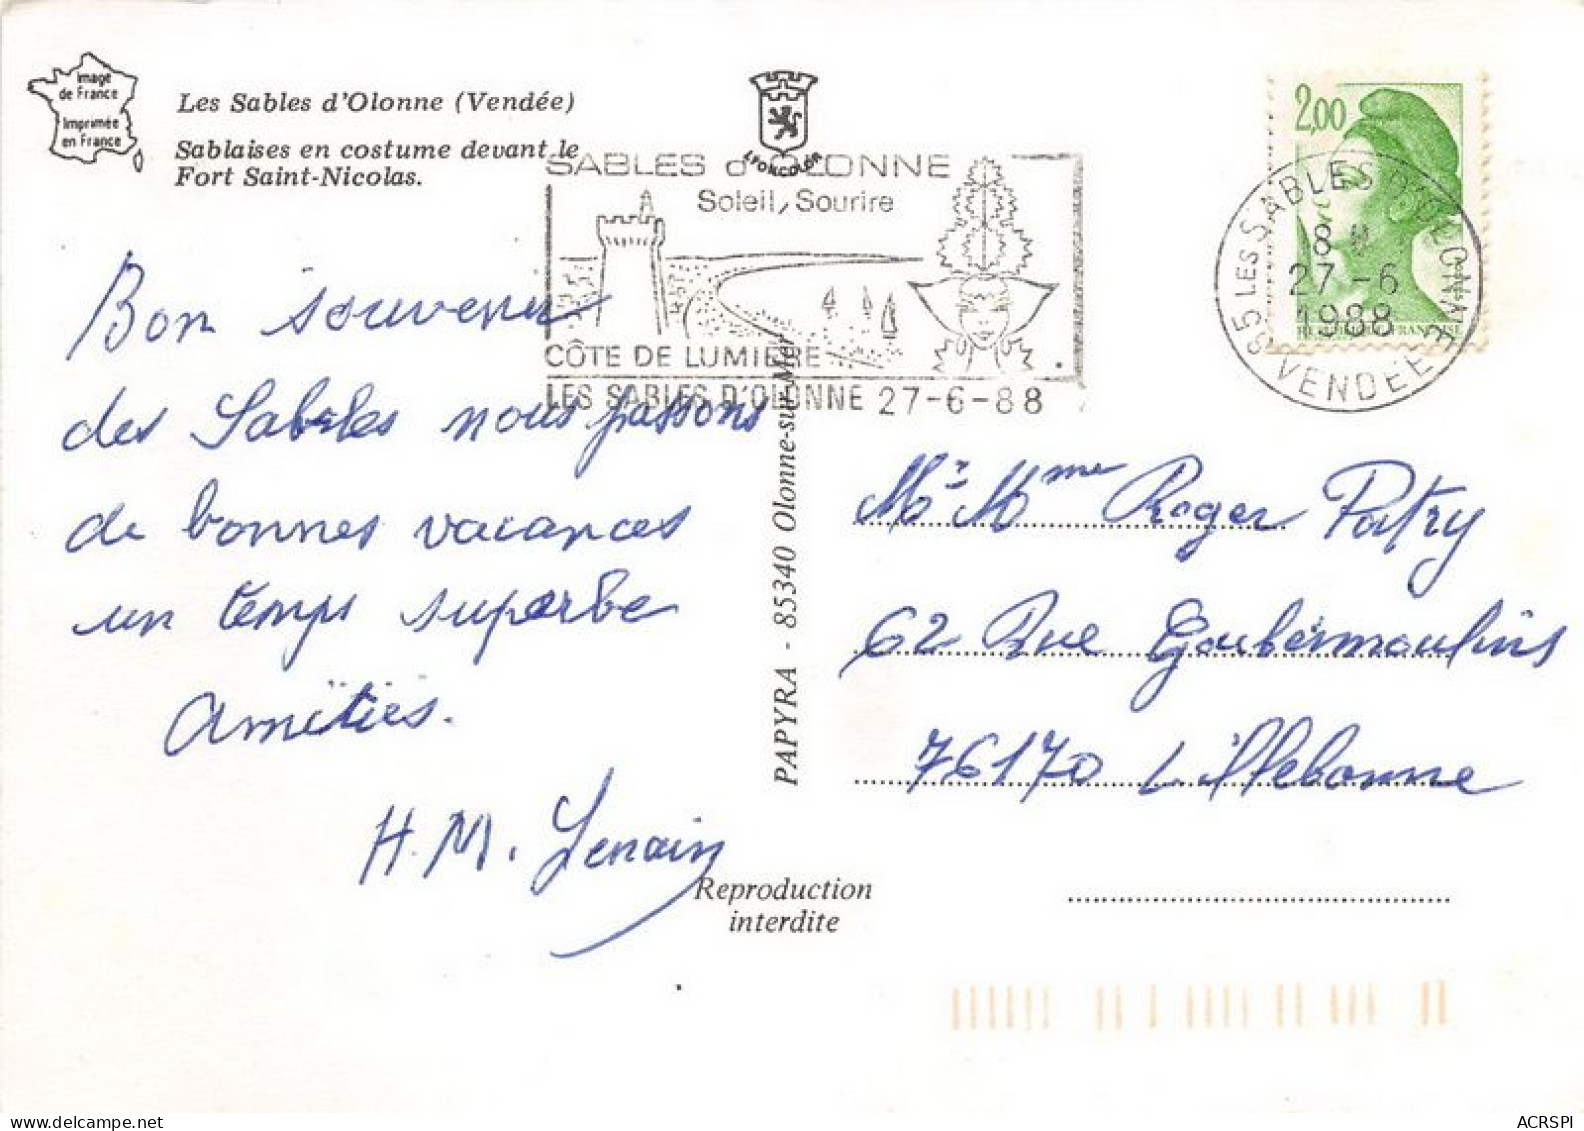 Image
de France
Imprimée
en France
Les Sables d'Olonne (Vendée)
Sablaises en costume devant le
Fort Saint-Nicolas.
LYONCOLOR
SABLES d'OLONNE
Soleil, Sourire
CÔTE DE LUMIERE
LES SABLES D'OLONNE 27-6-88
2,00
85 LES SABLES D'OLONNE
8 H
27 -6
1988
VENDEE
FRANÇAISE
Bon souvenir
des Sables nous passons
de bonnes vacances
un temps superbe
Amitiés.
H. M. Lenain
PAPYRA - 85340 Olonne-sur-Mer
Mr Mme Roger Patry
62 Rue Goubermoulins
76170 Lillebonne
Reproduction
interdite
ACRSPI